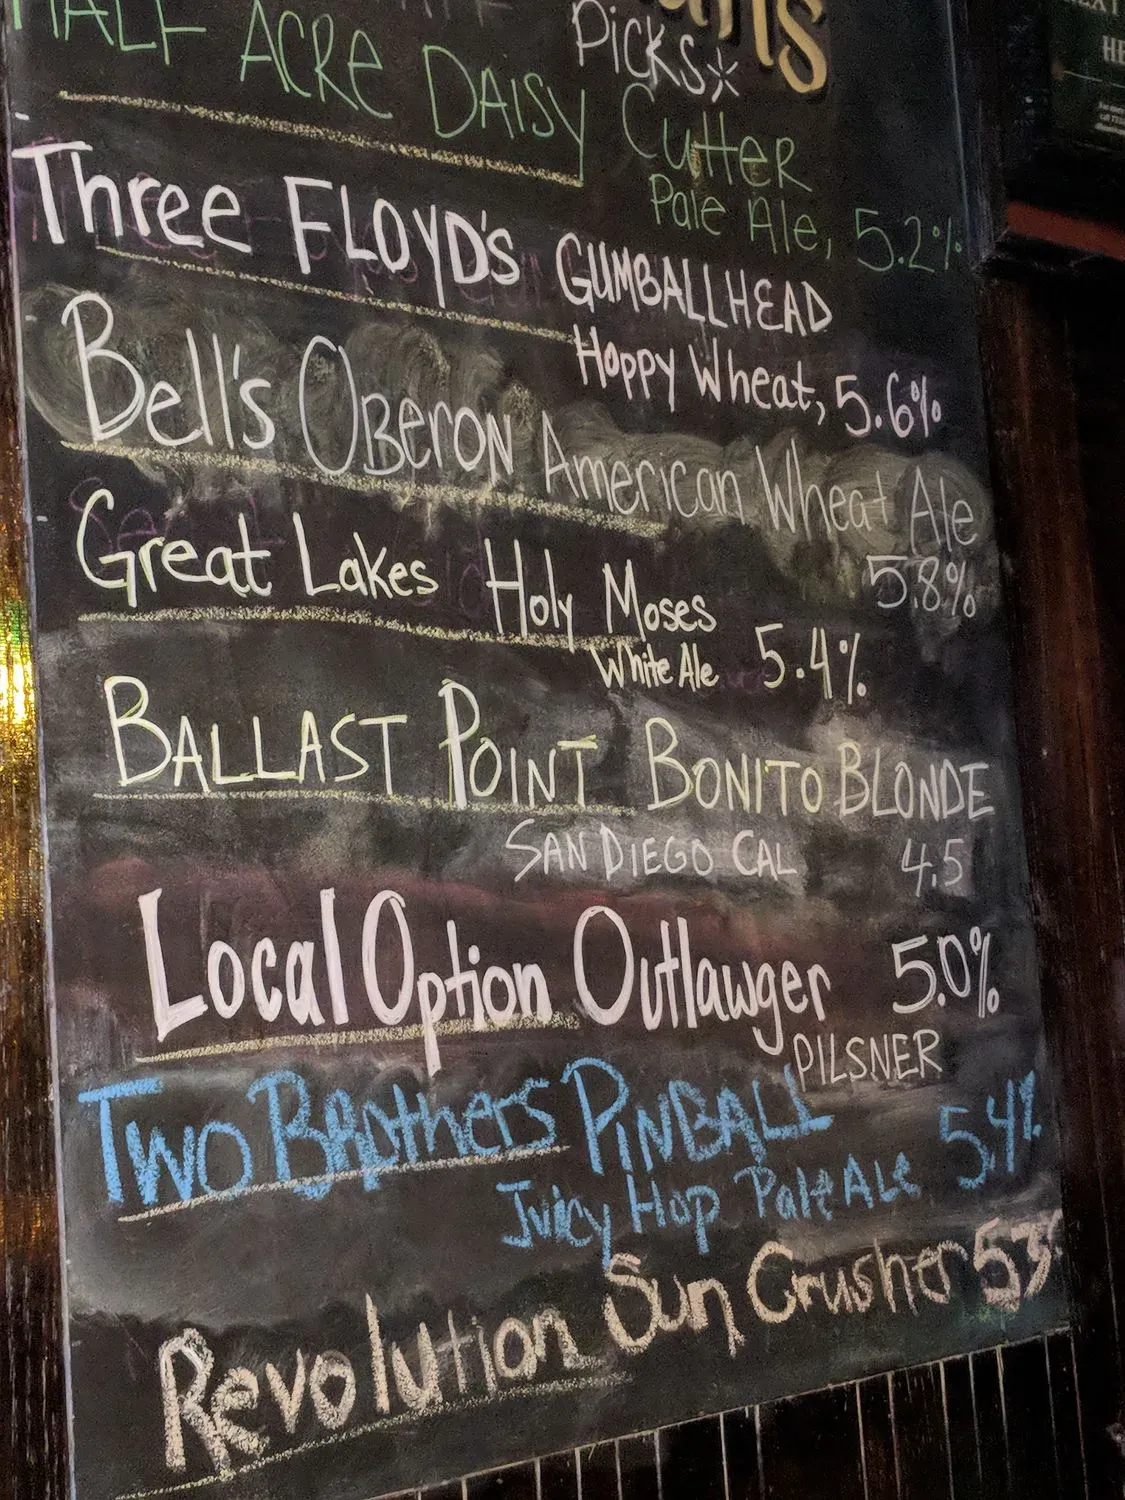 Picks*
HALF ACRE DAISY Cutter
Pale Ale, 5.2%
Three FLOYD's GUMBALLHEAD
Hoppy Wheat, 5.6%
Bell's Oberon American Wheat Ale
5.8%
Great Lakes Holy Moses
White Ale 5.4%
BALLAST POINT BONITO BLONDE
SAN DIEGO CAL 4.5
Local Option Outlawger 5.0%
PILSNER
Two Brothers PINBALL
Juicy Hop Pale Ale 5.4%
Revolution Sun Crusher 5.3%